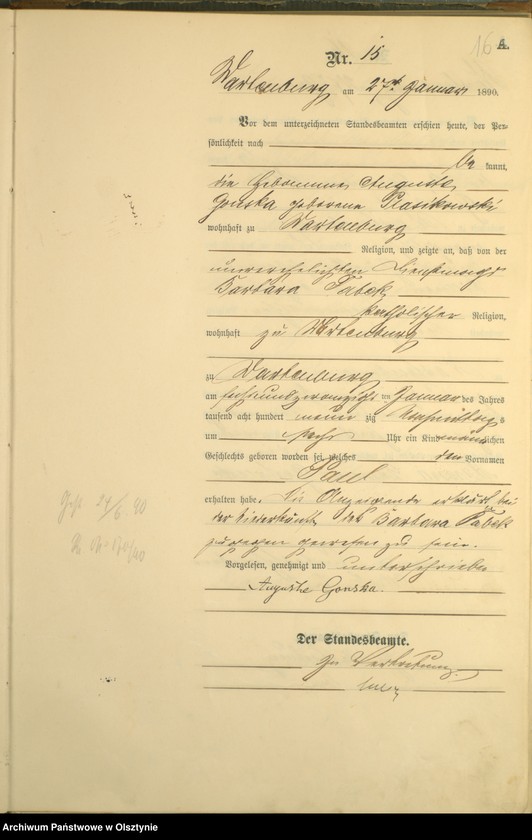 16 A.
Nr. 15
Wartenburg am 27ten Januar 1890.
Vor dem unterzeichneten Standesbeamten erschien heute, der Per-
sönlichkeit nach
be kannt,
die Hebamme Auguste
Gonska geborene
wohnhaft zu Wartenburg
Religion, und zeigte an, daß von der
unverehelichten Dienstmagd
Barbara
katholischer Religion,
wohnhaft zu Wartenburg
zu Wartenburg
am sechsundzwanzigsten Januar des Jahres
tausend acht hundert neun zig Nachmittags
um sechs Uhr ein Kind männlichen
Geschlechts geboren worden sei, welches den Vornamen
Paul
erhalten habe. Die Anzeigende erklärt bei
der Niederkunft der Barbara
zugegen gewesen zu sein.
Vorgelesen, genehmigt und unterschrieben
Auguste Gonska.
Der Standesbeamte.
In Vertretung.
Archiwum Państwowe w Olsztynie